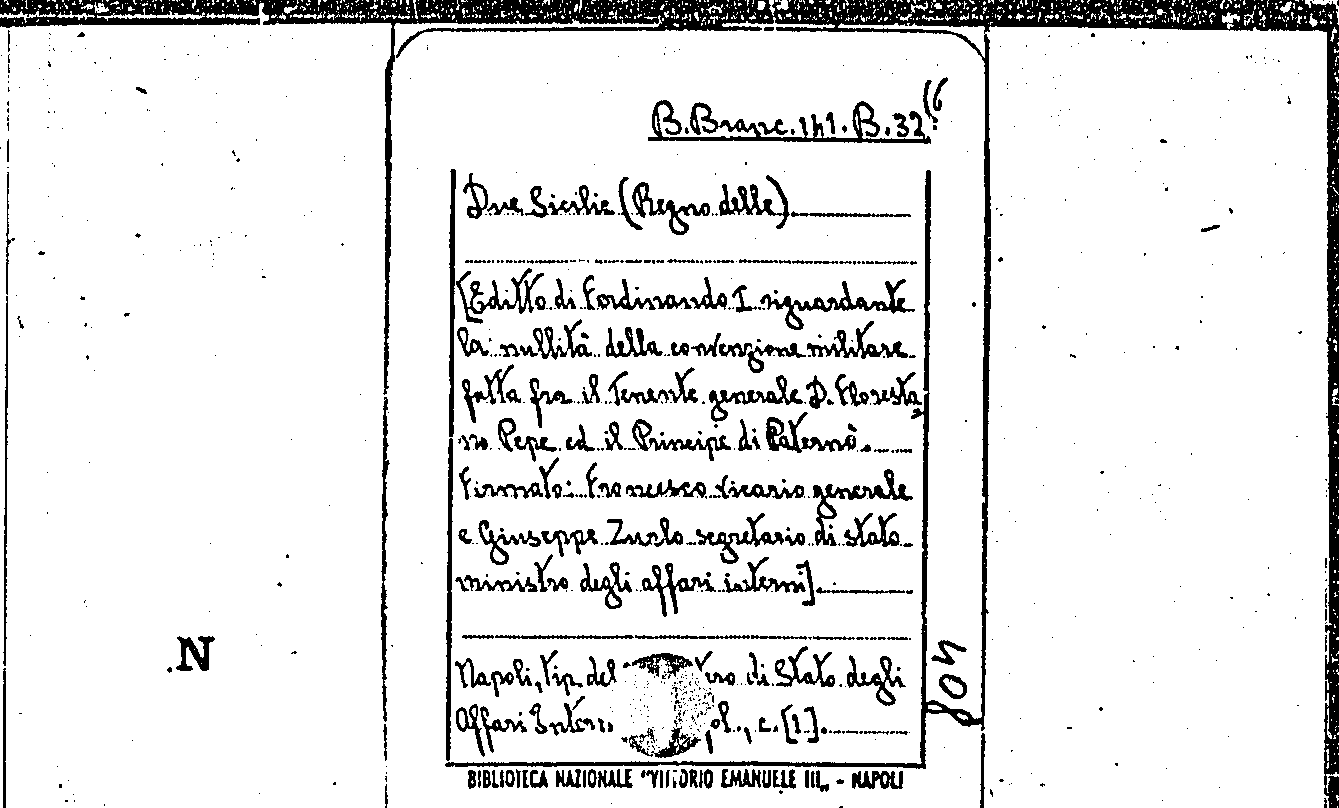 B.Branc.141.B.32(6
Due Sicilie (Regno delle).
[Editto di Ferdinando I riguardante
la nullità della convenzione militare
fatta fra il Tenente generale D. Floresta
no Pepe ed il Principe di Paternò.
Firmato: Francesco vicario generale
e Giuseppe Zurlo segretario di stato
ministro degli affari interni].
N
Napoli, tip. del di Stato degli
Affari c. [1].
BIBLIOTECA NAZIONALE "VITTORIO EMANUELE III" - NAPOLI